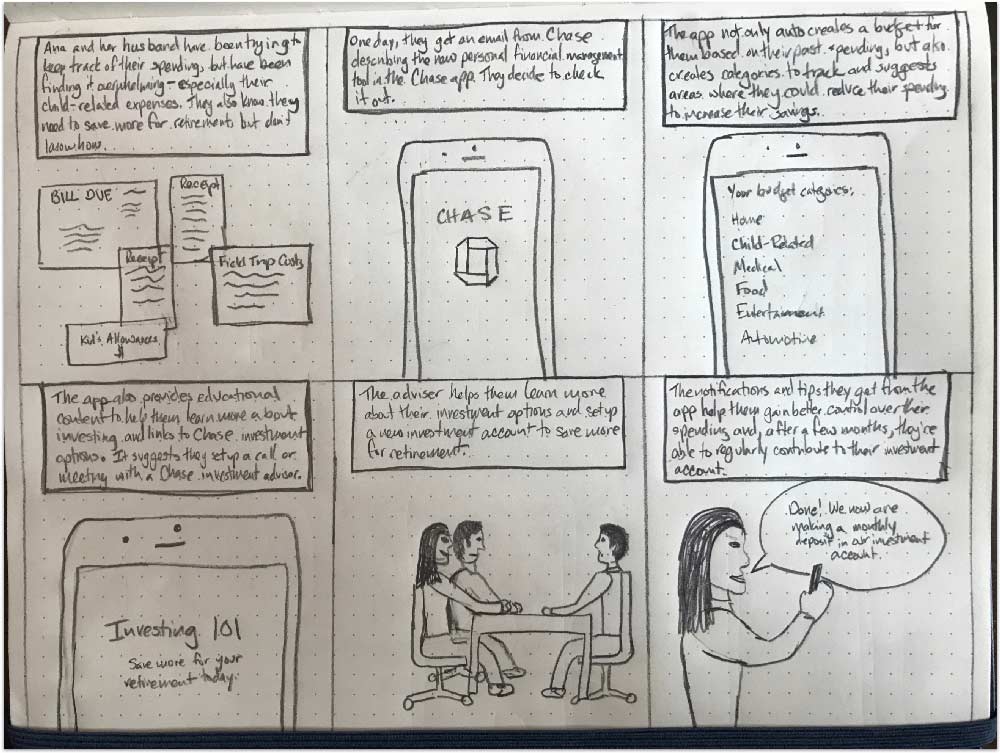 Ana and her husband have been trying to
keep track of their spending, but have been
finding it overwhelming - especially their
child-related expenses. They also know they
need to save more for retirement, but don't
know how.
BILL DUE
Receipt
Receipt
Field Trip Costs
Kid's Allowances
$
One day, they get an email from Chase
describing the new personal financial management
tool in the Chase app. They decide to check
it out.
CHASE
The app not only auto creates a budget for
them based on their past spending, but also
creates categories to track and suggests
areas where they could reduce their spending
to increase their savings.
Your budget categories:
Home
Child-Related
Medical
Food
Entertainment
Automotive
The app also provides educational
content to help them learn more about
investing and links to Chase investment
options. It suggests they set up a call or
meeting with a Chase investment advisor.
Investing 101
Save more for your
retirement today.
The adviser helps them learn more
about their investment options and set up
a new investment account to save more
for retirement.
The notifications and tips they get from the
app help them gain better control over their
spending and, after a few months, they're
able to regularly contribute to their investment
account.
Done! We now are
making a monthly
deposit in our investment
account.